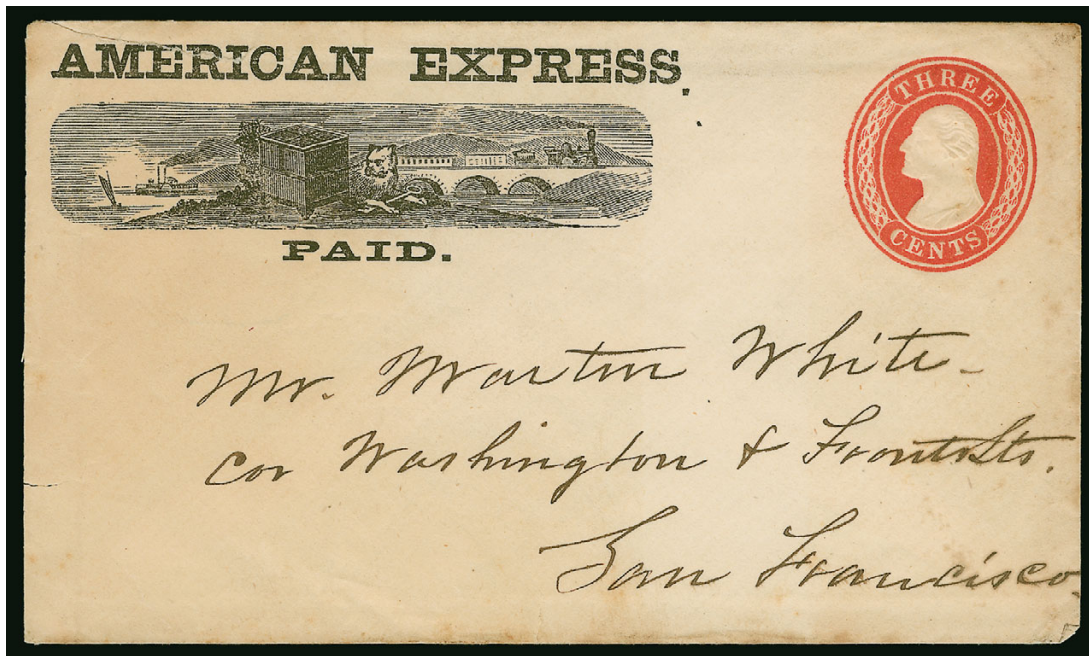 AMERICAN EXPRESS.
PAID.
THREE
CENTS
Mr. Martin White -
cor Washington & Front Sts.
San Francisco